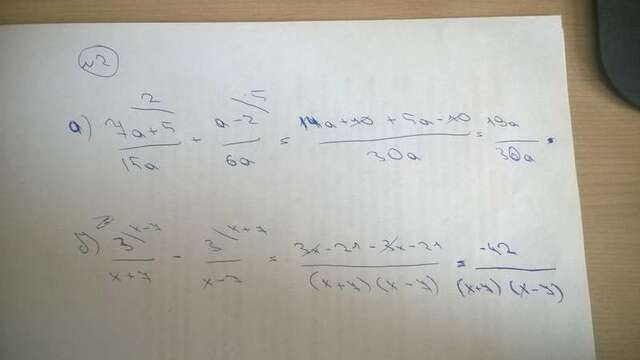 №2
а) 7a+5/15a (2 + a-2/6a (5 = 14a+10+5a-10/30a = 19a/30a.
б) 3/x+7 (x-7 - 3/x-7 (x+7 = 3x-21-3x-21/(x+7)(x-7) = -42/(x+7)(x-7)